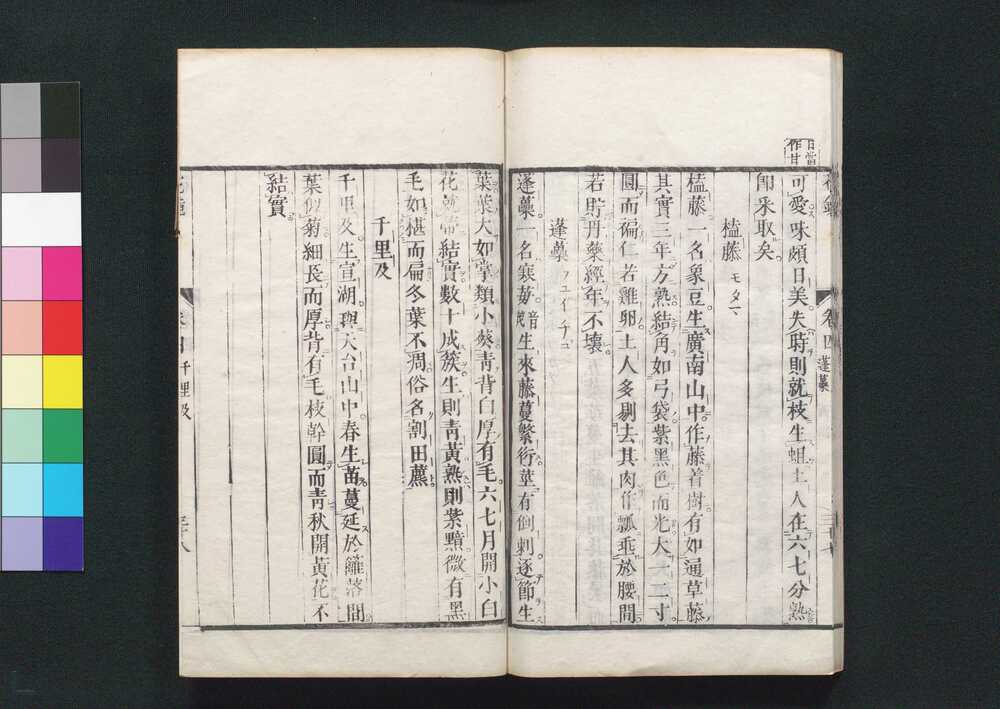 日當
作甘
可愛味頗日美失時則就枝生蛆土人在六七分熟
卽采取矣
榼藤 モダマ
榼藤一名象豆生廣南山中作藤着樹有如通草藤
其實三年方熟結角如弓袋紫黑色而光大一二寸
圓而褊仁若雞卵土人多剔去其肉作瓢垂於腰間
若貯丹藥經年不壞
蓬蔂 フユイチゴ
蓬蔂一名寒莓音茂生來藤蔓繁衍莖有倒刺逐節生
卷四 蓬蔂
三十七
葉葉大如掌類小葵靑背白厚有毛六七月開小白
花就蒂結實數十成簇生則靑黃熟則紫黯微有黑
毛如椹而扁冬葉不凋俗名割田藨
千里及
千里及生宣湖與天台山中春生苗蔓延於籬落間
葉似菊細長而厚背有毛枝幹圓而靑秋開黃花不
結實
卷四 千里及
三十八